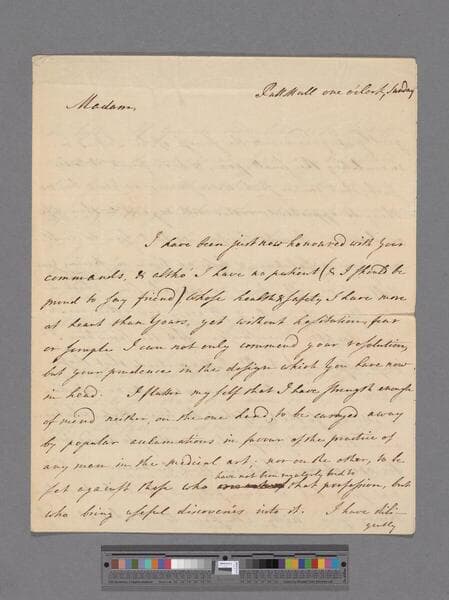 Pall Mall one o'Clock, Sunday
Madam,
I have been just now honoured with your
commands, & altho' I have no patient (& I should be
proud to say friend) whose health & safety I have more
at heart than Yours, yet without hesitation, fear
or scruple I can not only commend your resolution,
but your prudence in the design which You have now
in hand. I flatter my self that I have strength enough
of mind neither, on the one hand, to be carryed away
by popular acclamations in favour of the practice of
any man in the medical art, nor on the other, to be
set against those who
have not been regularly bred to
that profession, but
who bring useful discoveries into it. I have dili-
gently